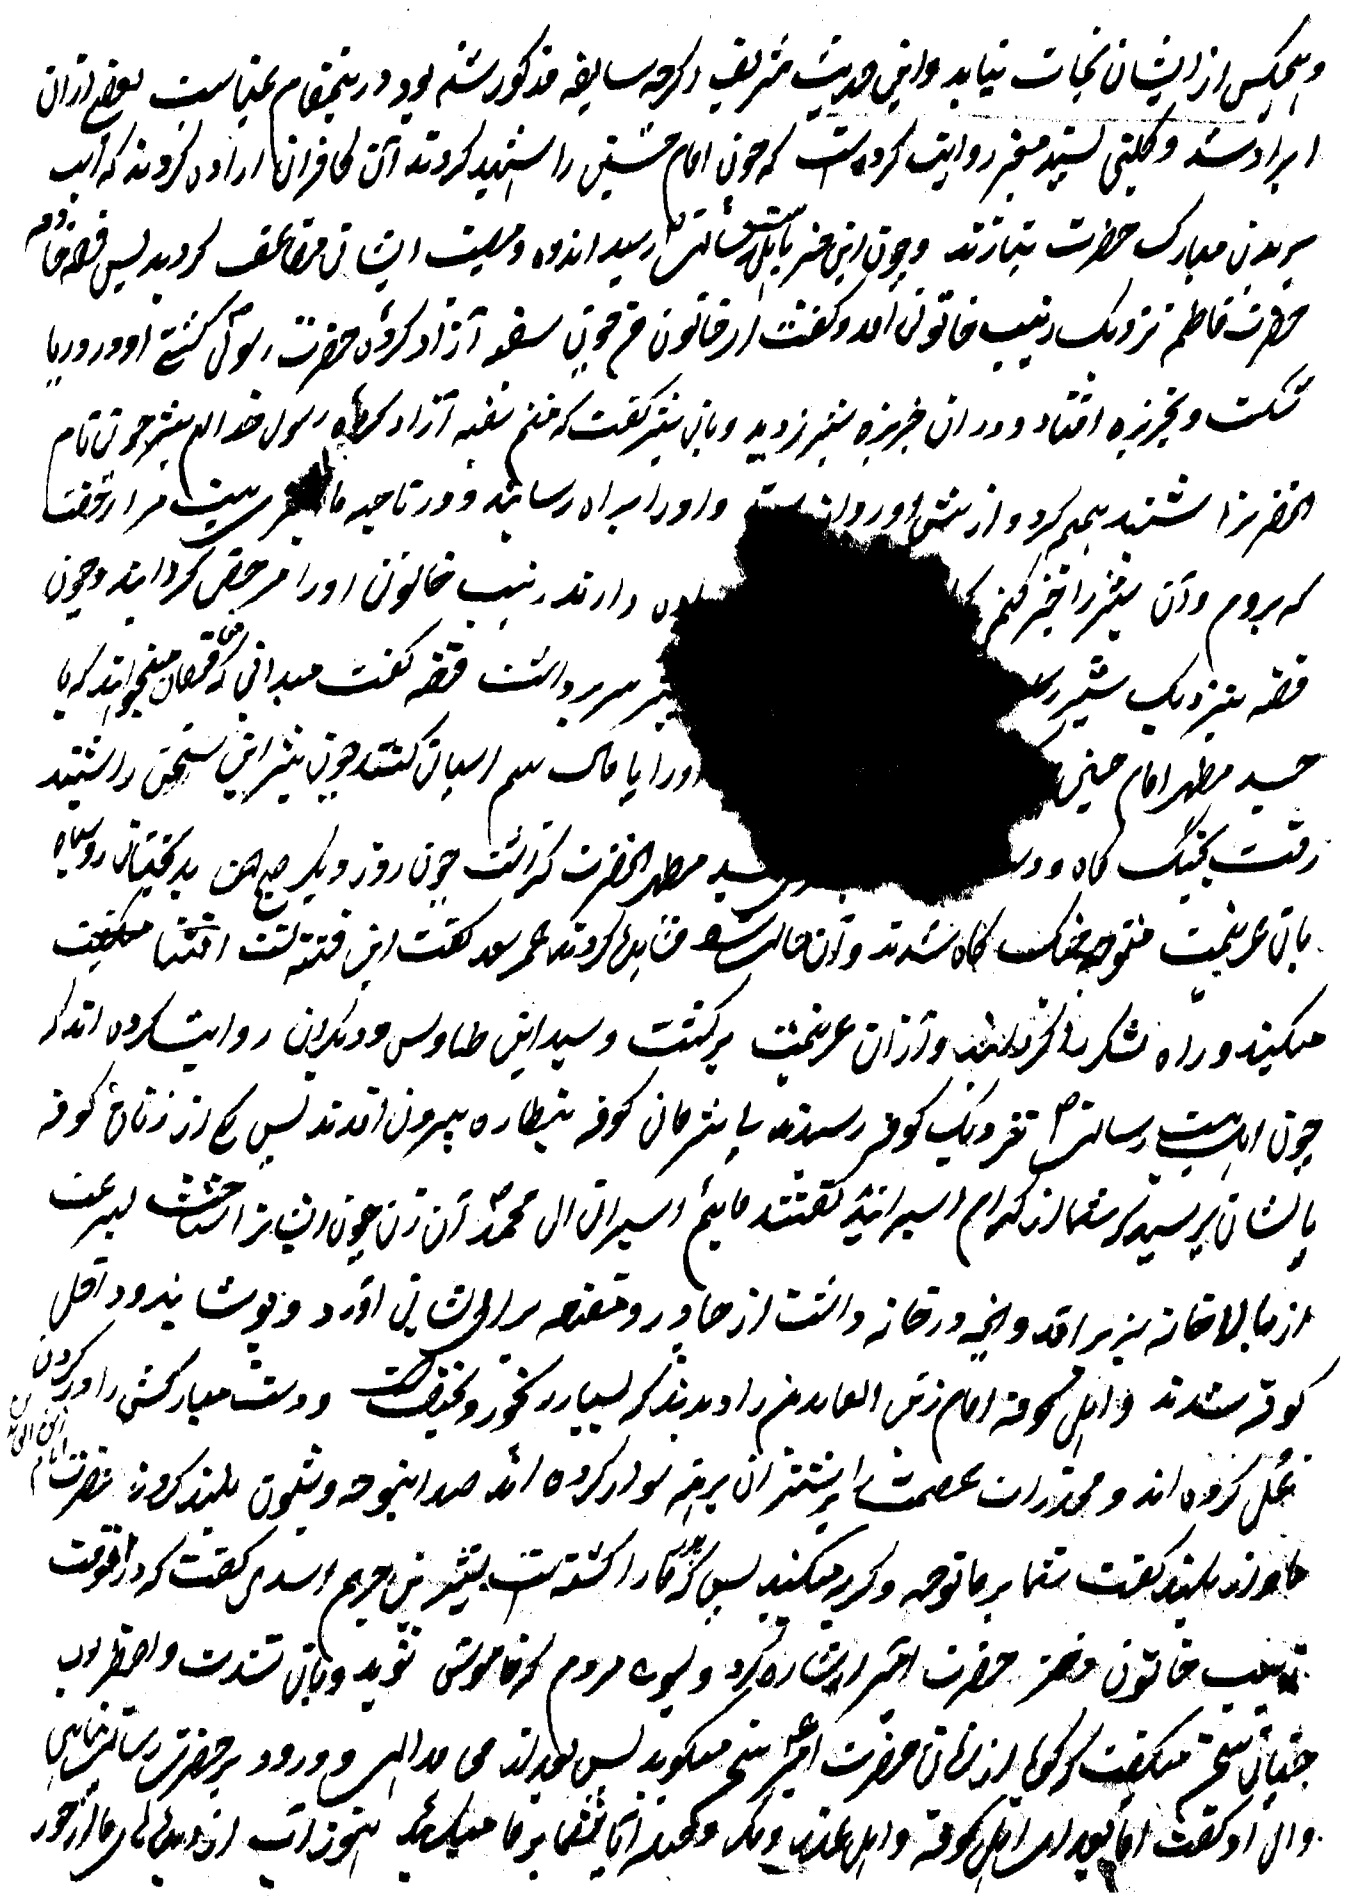 و هیچکس از ایشان نجات نیابد و این حدیث شریف اگرچه سابقه مذکور شده بود در ینمقام بمناسبت بعضی از آن
ایراد شد و کلینی بسند معتبر روایت کرده است که چون امام حسین را شهید کردند آن کافران اراده کردند که اسب
بر بدن مبارک حضرت بتازند و چون این خبر باهل بیت رسالت رسید اندوه و مصیبت ایشان مضاعف گردید پس فضه خادمه
حضرت فاطمه نزدیک زینب خاتون آمد و گفت ای خاتون من چون سفینه آزاد کرده حضرت رسول کشتی او در دریا
شکست و بجزیره افتاد و در آن جزیره شیر دید و بآن شیر گفت که منم سفینه آزاد کرده رسول خدا آن شیر چون نام
آنحضرترا شنید همهمه کرد و از پیش او روانه و او را براه رسانید و در ناحیه ما شیری هست مرا رخصت ده
که بروم و آن شیر را خبر کنم که اراده دارند زینب خاتون او را مرخص گردانید و چون
فضه بنزدیک شیر رسید سر برداشت فضه گفت میدانی که میخواهند که با
جسد مطهر امام حسین او را پامال سم اسبان کنند چون شیر این سخن را شنید
رفت بجنگ گاه و دست جسد مطهر آنحضرت گذاشت چون روز دیگر صبح آن بدبختان روسیاه
بآن عزیمت متوجه جنگ گاه شدند و آن حالت مشاهده کردند عمر سعد گفت این فتنه ایست افشا مکنید
میکنید و راه لشکر را گردانید و از آن عزیمت برگشت و سید ابن طاوس و دیگران روایت کرده اند که
چون اهلبیت رسالت نزدیک کوفه رسیدند بی شرمان کوفه بنظاره بیرون آمدند پس یکی از زنان کوفه
بایشان پرسید که شما از کدام اسیرانید گفتند مائیم اسیران آل محمد آن زن چون ایشانرا شناخت بسرعت
از بالا خانه بزیر آمد و آنچه در خانه داشت از چادر و مقنعه برای ایشان آورد و پوشانید و داخل
کوفه شدند و اهل کوفه امام زین العابدین را دیدند که بسیار رنجور و نحیف است و دست مبارکش را در گردن
غل کرده اند و مخدرات عصمت را بر شتران برهنه سوار کرده اند صدا بنوحه و شیون بلند کردند حضرت امام زین العابدین
بآواز بلند گفت شما بر ما نوحه و گریه میکنید پس که ما را کشته است بشیر بن حریم اسدی گفت که در آنوقت
زینب خاتون دختر حضرت امیر اشاره کرد و بسوی مردم که خاموش شوید و بآن شدت و اضطراب
چنان سخن میگفت که گویا از زبان حضرت امیر سخن میگوید پس بعد از محامد الهی و درود بر حضرت رسالت پناهی
و آل او گفت اما بعد ای اهل کوفه و اهل غدر و مکر و حیله آیا شما بر ما میگریید هنوز آب از دیدهای ما از جور